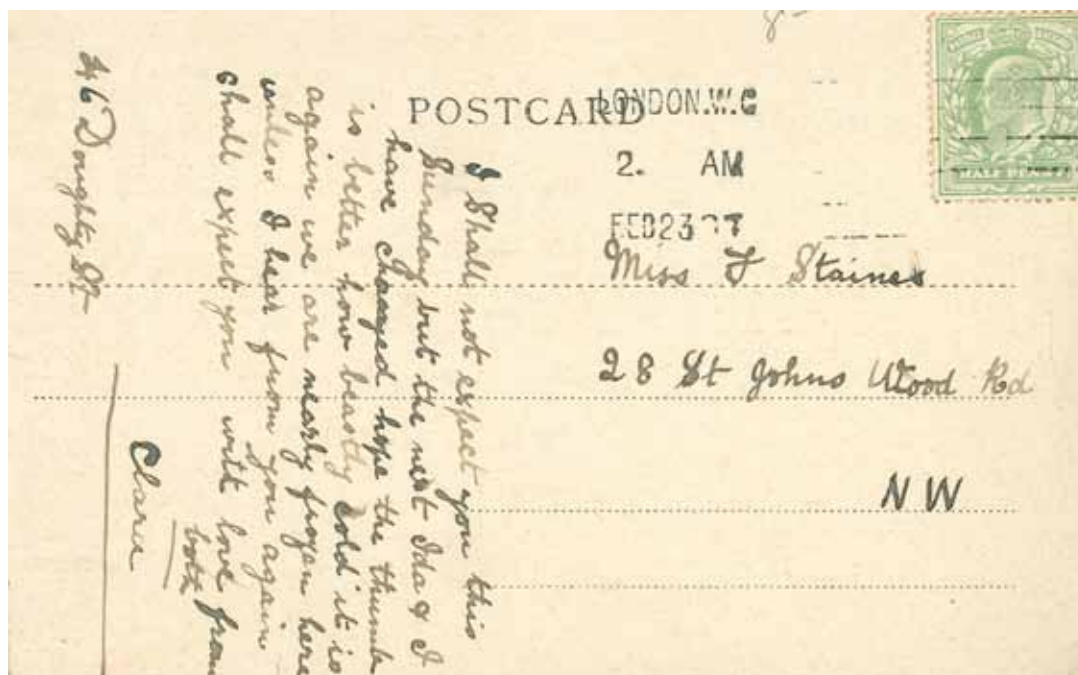 POSTCARD
LONDON.W.C
2. AM
FEB 23 07
HALF PENNY
Miss F Staines
28 St Johns Wood Rd
NW
46 Doughty St
I Shall not expect you this
Sunday but the next Ida & I
have changed hope the thumb
is better how beastly cold it is
again we are nearly frozen here
unless I hear from you again
shall expect you with love from
both
Clarie